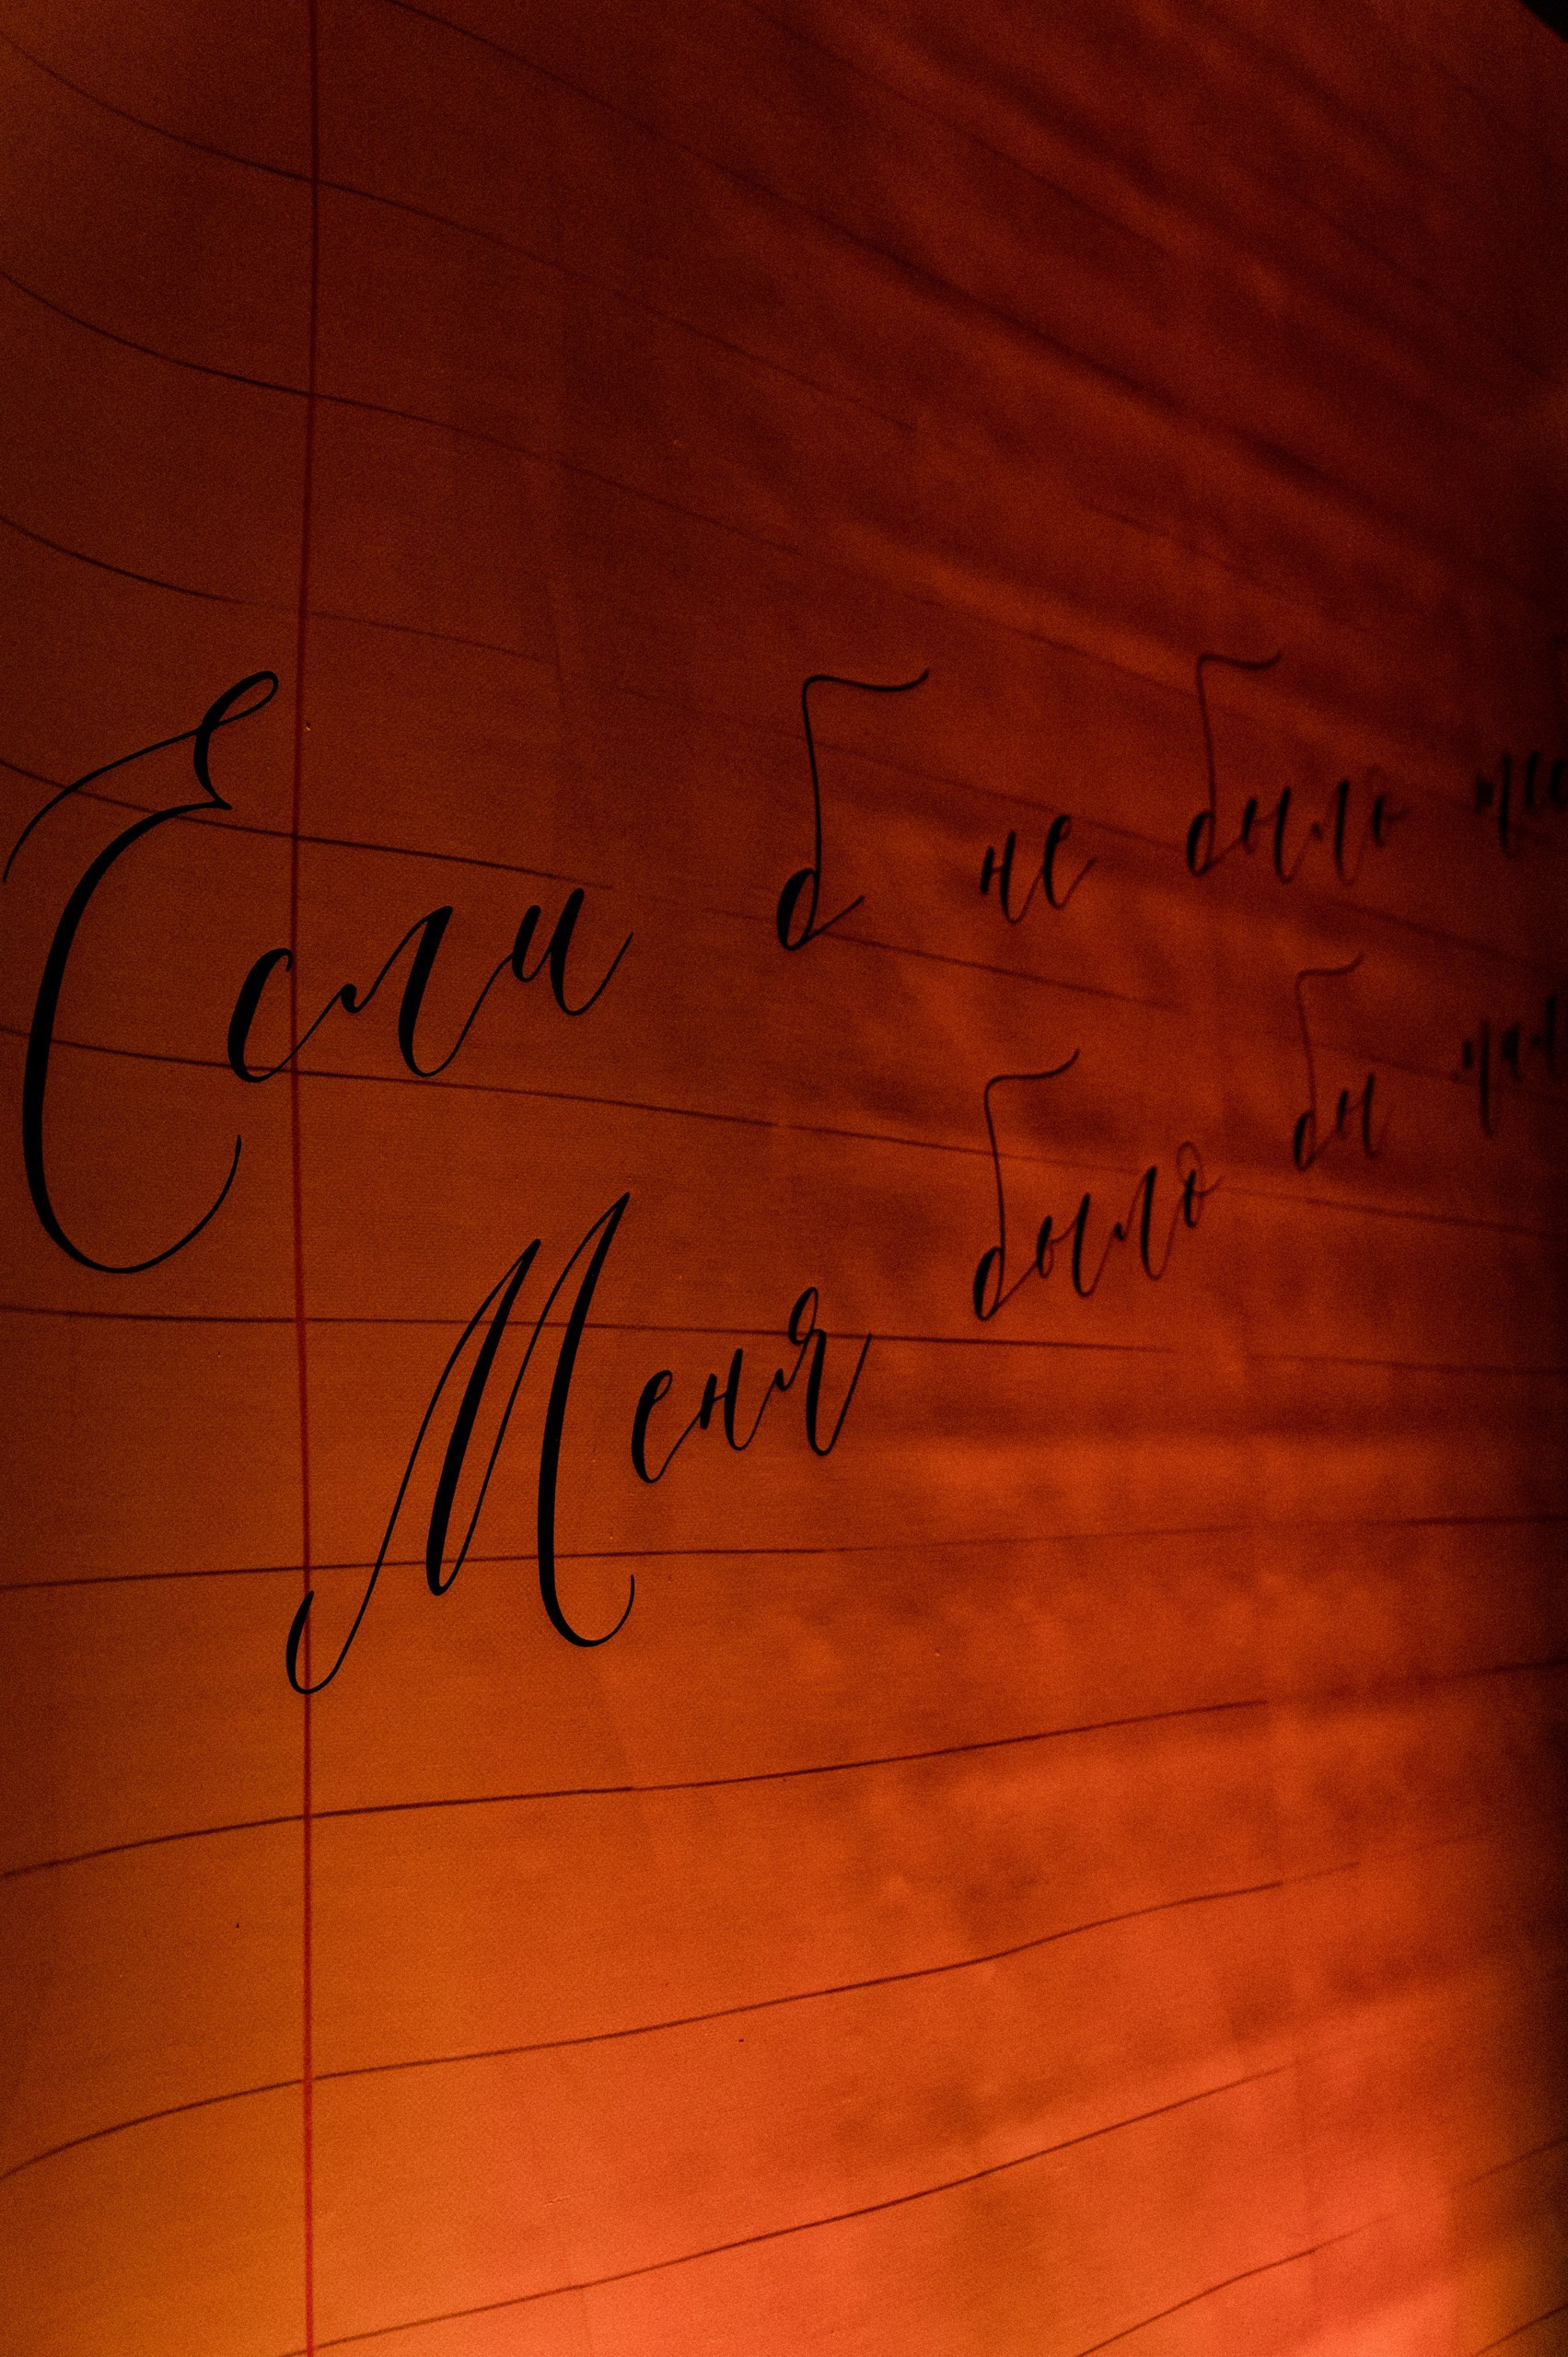 Если б не было
Меня было бы